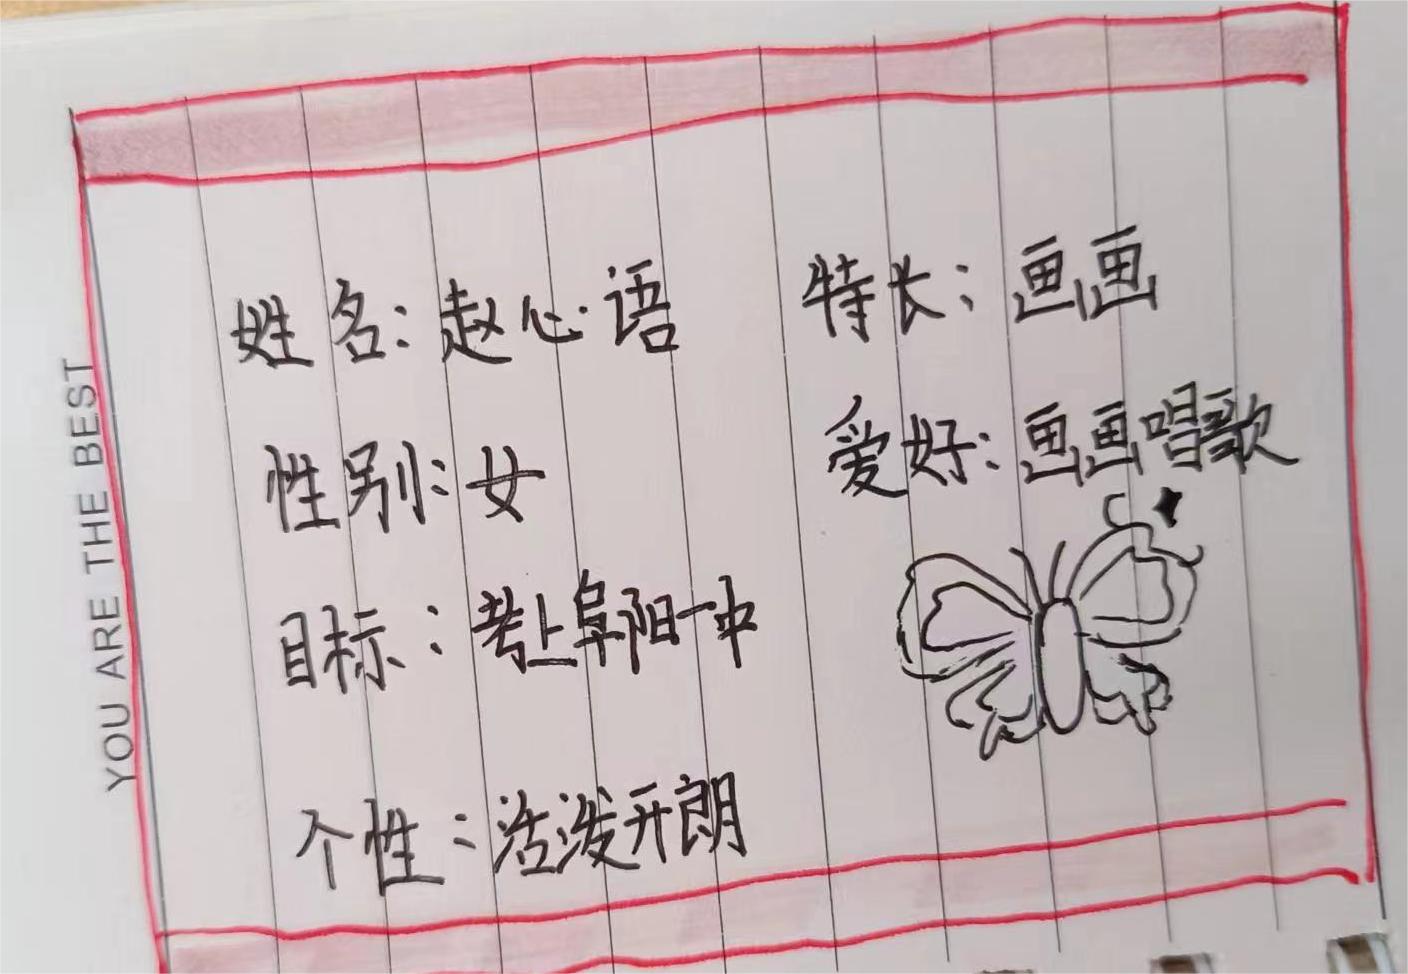 姓名:赵心语
性别:女
目标:考上阜阳一中
个性:活泼开朗
特长:画画
爱好:画画唱歌
YOU ARE THE BEST